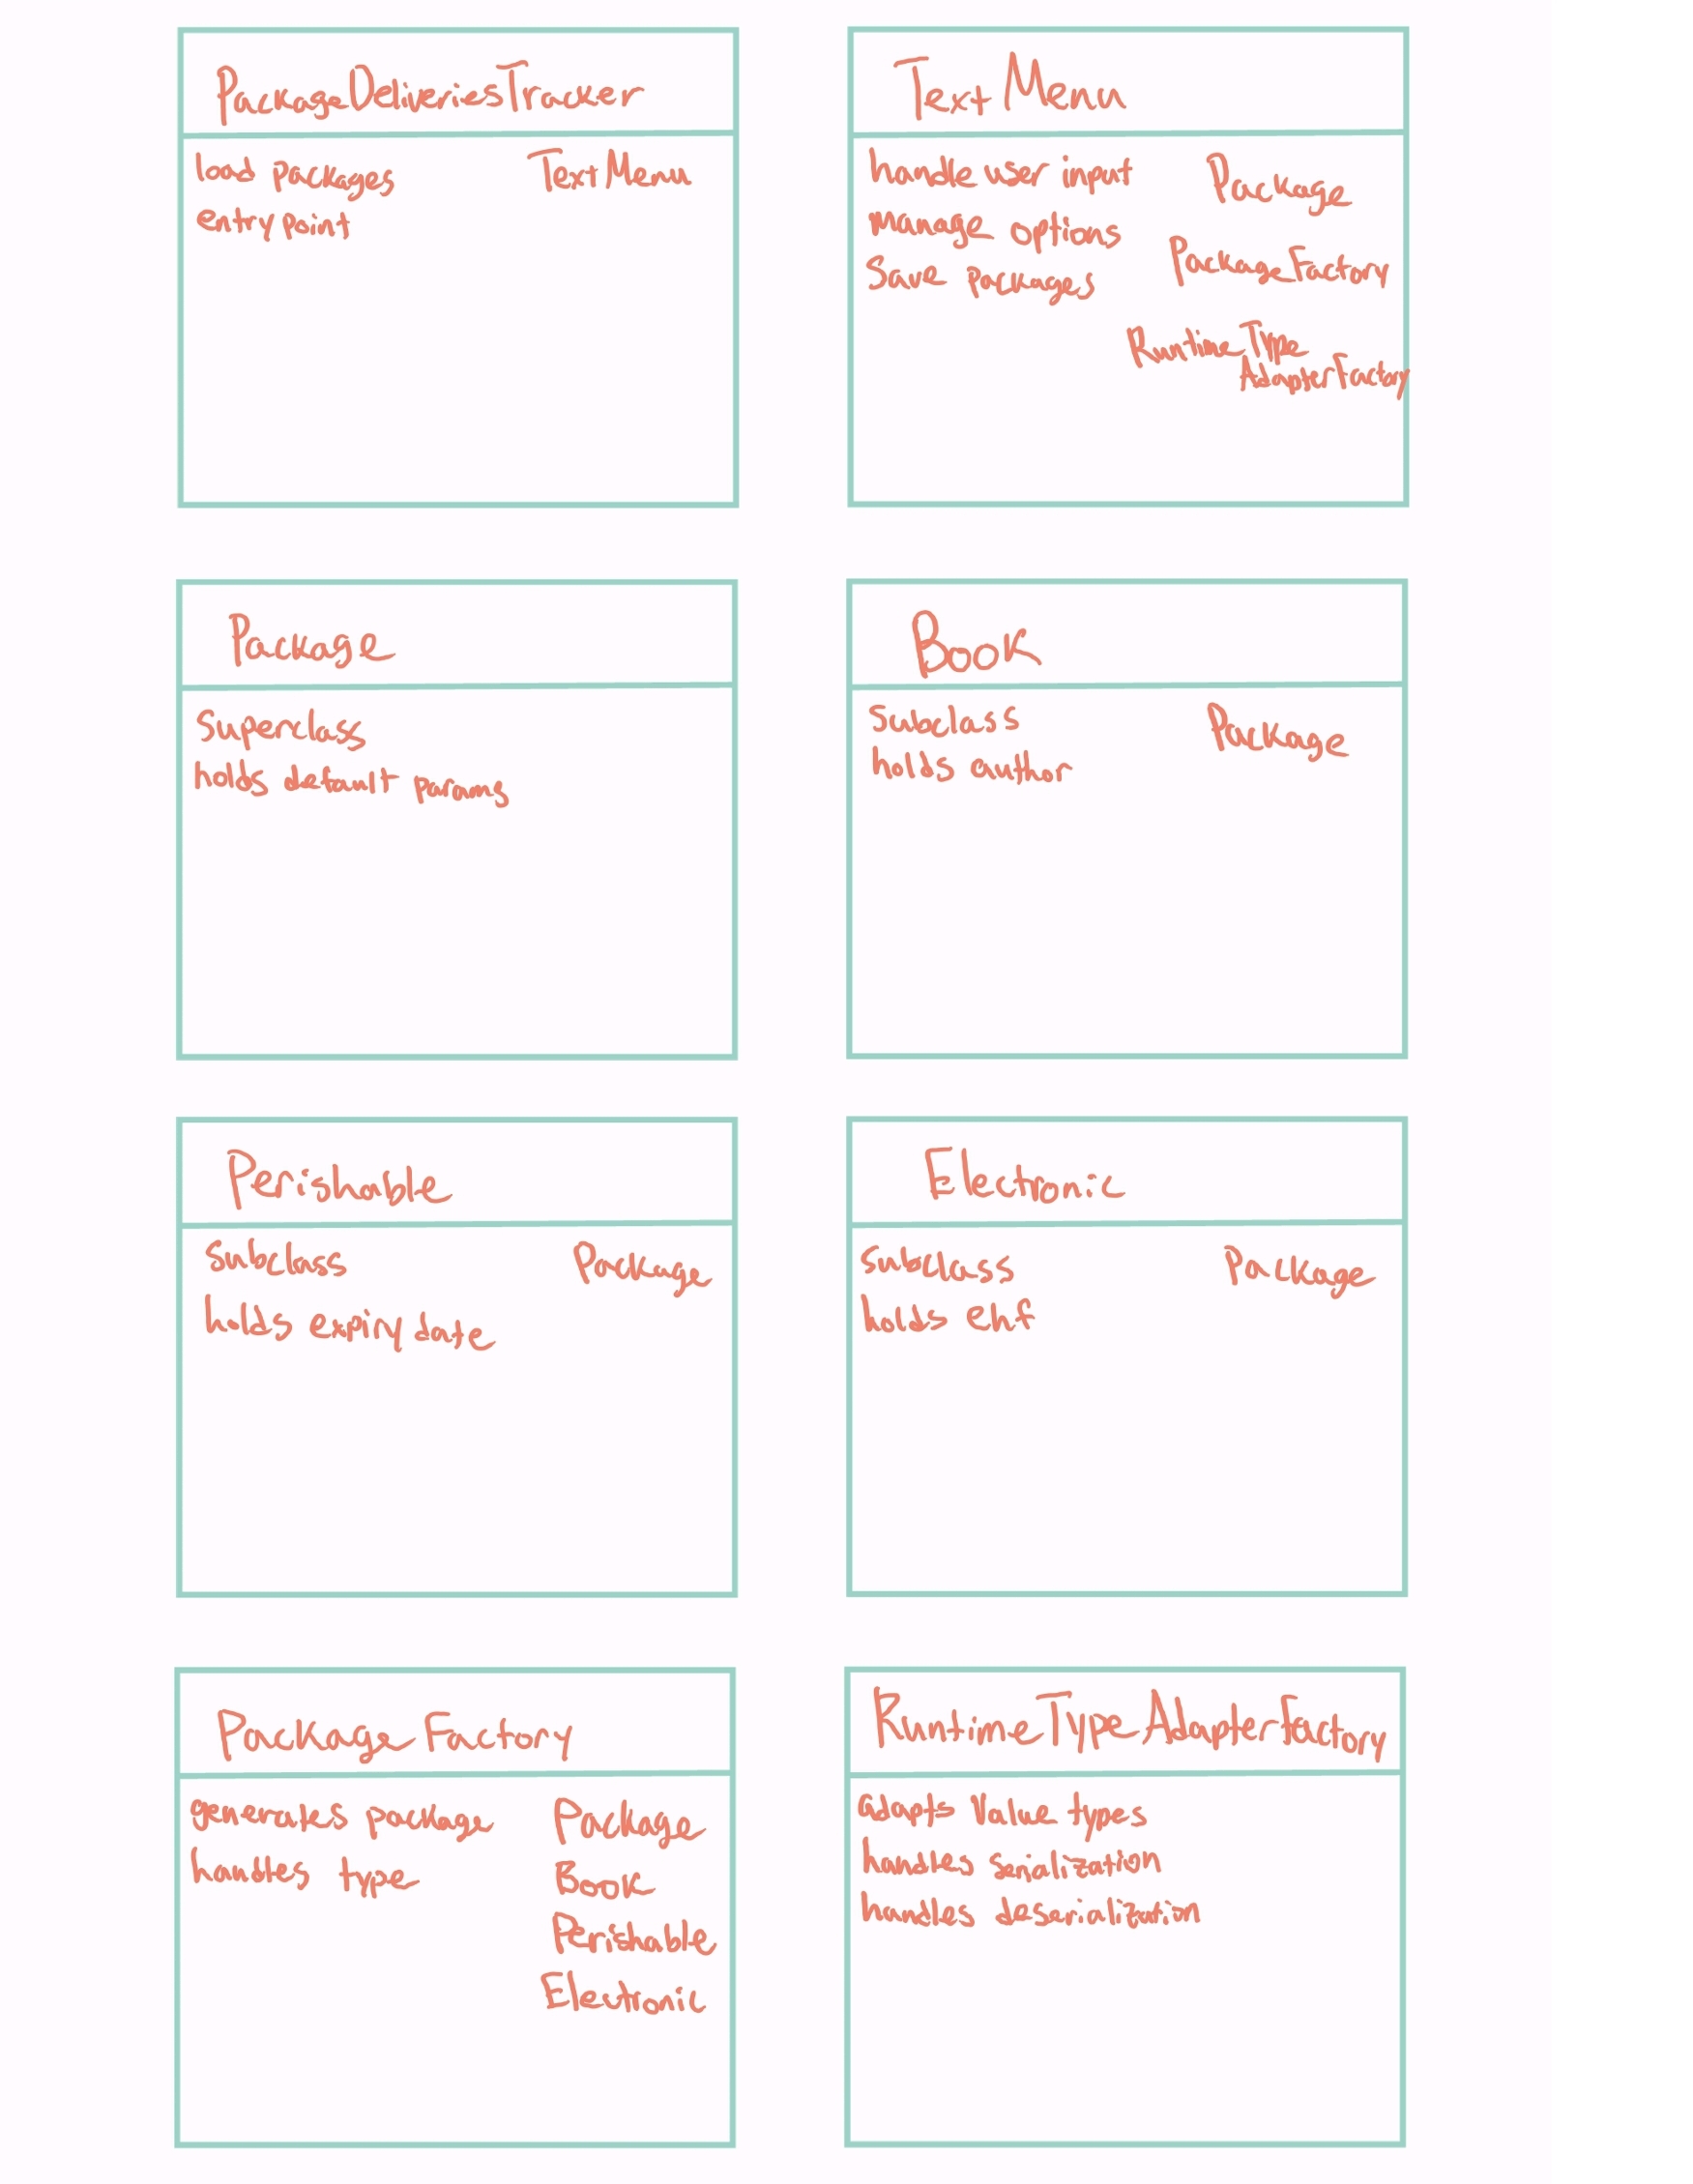 PackageDeliveriesTracker
load packages
entry point
TextMenu
TextMenu
handle user input
manage options
Save packages
Package
PackageFactory
RuntimeType
AdapterFactory
Package
superclass
holds default params
Book
subclass
holds author
Package
Perishable
subclass
holds expiry date
Package
Electronic
subclass
holds ehf
Package
PackageFactory
generates package
handles type
Package
Book
Perishable
Electronic
RuntimeTypeAdapterFactory
adapts value types
handles serialization
handles deserialization